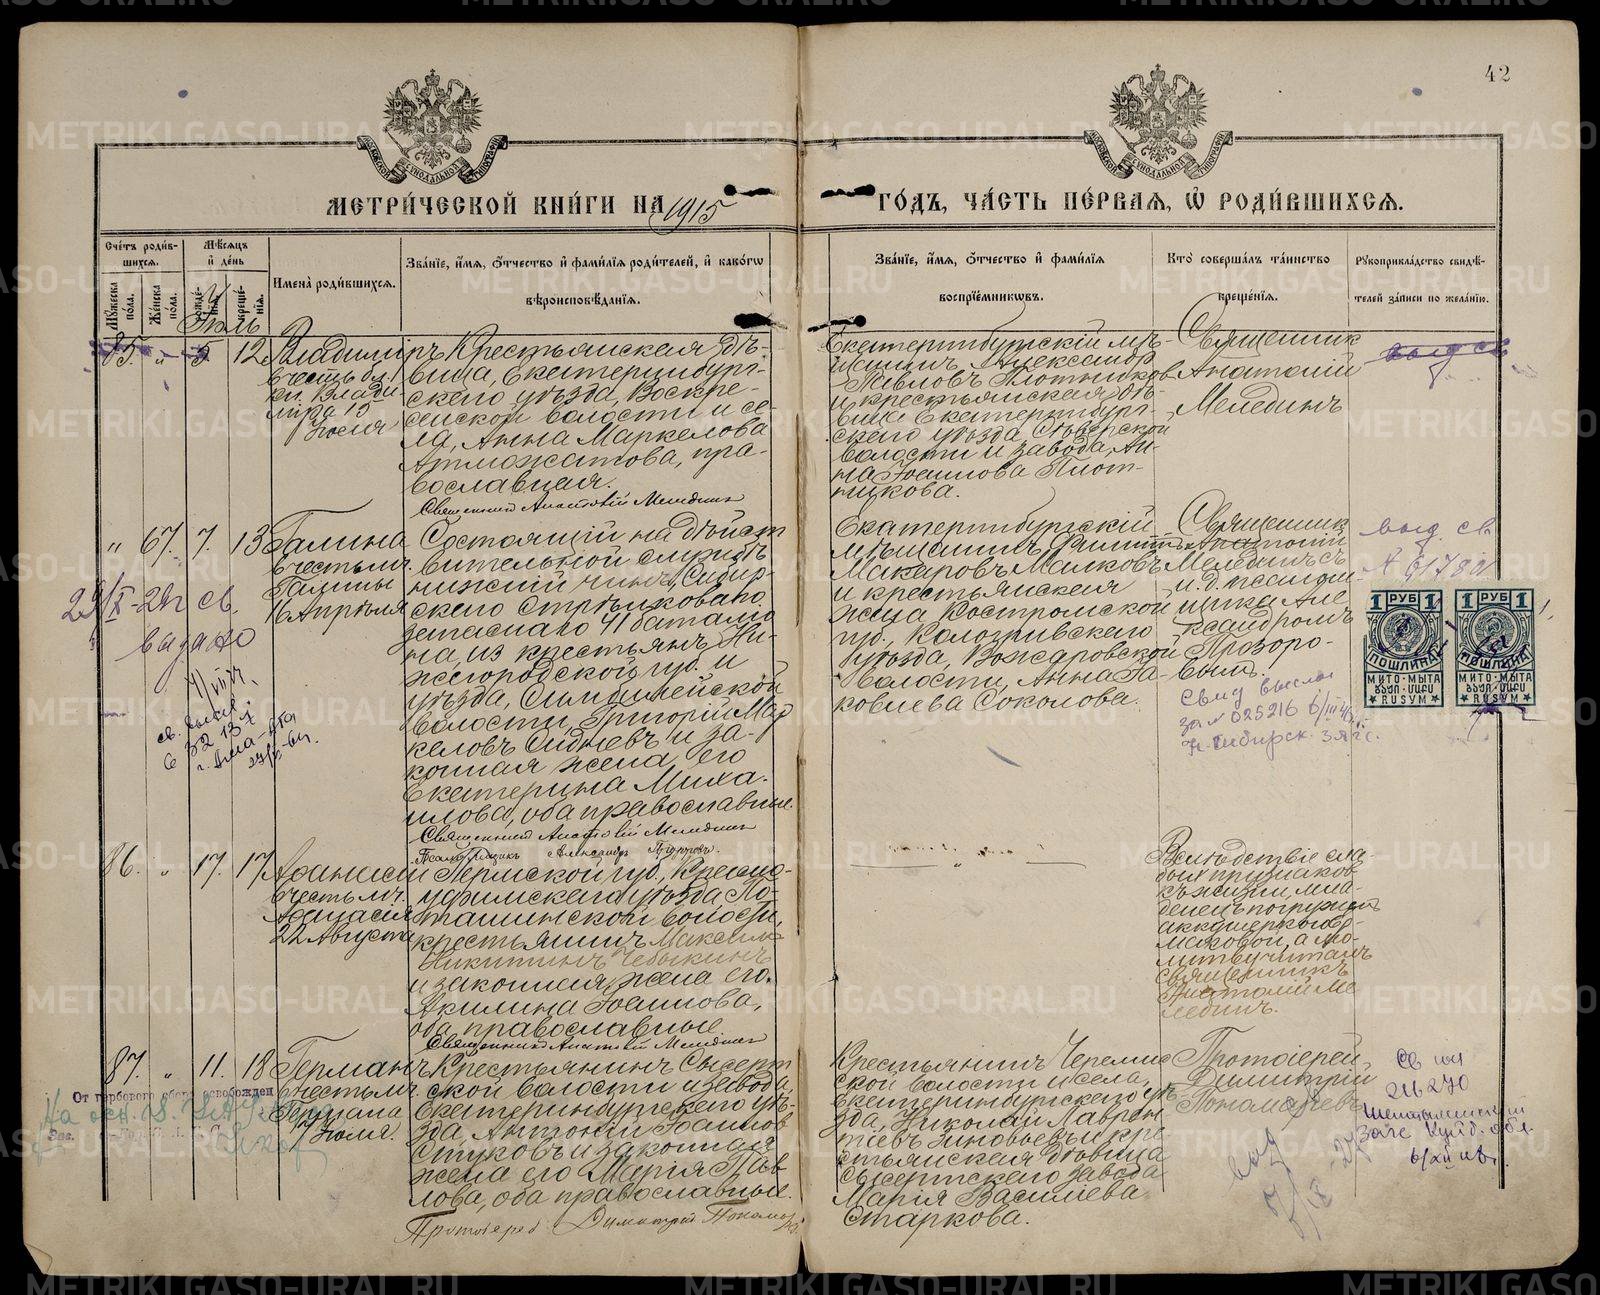 42
МЕТРИ́ЧЕСКОЙ КНИ́ГИ НА 1915
ГО́ДЪ, ЧА́СТЬ ПЕ́РВАЯ, Ѡ҆ РОДИ́ВШИХСЯ.
Сче́тъ роди́вшихся.
Му́жеска по́ла.
Же́нска по́ла.
Мѣ́сяцъ и҆ де́нь
рожде́нія.
креще́нія.
Имена̀ роди́вшихся.
Зва́нїе, и҆́мя, ѻ҆́тчество и҆ фами́лїя роди́телей, и҆ како́гѡ
вѣроисповѣ́данїя.
Зва́нїе, и҆́мя, ѻ҆́тчество и҆ фами́лїя
воспрїе́мникѡвъ.
Кто̀ соверша́лъ та́инство
креще́нїя.
Рꙋкоприкла́дство свидѣ́-
телей за́писи по жела́нїю.
Іюль
85. " 5 12
Владиміръ
въ честь бл.
кн. Влади-
міра 15
Іюля
Крестьянская дѣ-
вица, Екатеринбург-
скаго уѣзда, Воскре-
сенской волости и се-
ла, Анна Маркелова
пра-
вославная.
Священникъ Анатолій Мелединъ
Екатеринбургскій мѣ-
щанинъ Александр
Павловъ Плотников
и крестьянская дѣ-
вица Екатеринбург-
скаго уѣзда, Сѣверской
волости и завода, Ан-
на Іоаннова Плот-
никова.
Священник
Анатолій
Мелединъ
выд св
" 67. 7. 13
Галина
въ честь мч.
Галины
16 Апрѣля
Состоящій на дѣйст
вительной службѣ
нижній чинъ, Сибир-
скаго Стрѣлковаго
запаснаго 41 баталіо
на, из крестьянъ, Ни-
жегородской губ. и
уѣзда,
волости, Григорій Мар
келовъ и за-
конная жена его
Екатерина Миха-
илова, оба православные.
Священникъ Анатолій Мелединъ
Псаломщикъ Александръ Прозоровъ.
Екатеринбургскій
мѣщанинъ Филиппъ
Макаровъ Малковъ
и крестьянская
жена Костромской
губ., Кологривскаго
уѣзда,
волости, Анна Яковлева
Соколова.
Священник
Анатолій
Мелединъ съ
и. д. псалом-
щика Але
ксандромъ
Прозоро-
вым.
выд. св
Свид выслан
за № 025216
Н-Сибирск. загс.
св.
выдано
св. выслн
г. Алма-Ата
1 РУБ 1
ПОШЛИНА
МИТО·МЫТА
RUSYM
1 РУБ 1
ПОШЛИНА
МИТО·МЫТА
RUSYM
86. " 17. 17
Аѳанасій
въ честь мч.
Аѳанасія
22 Августа
Пермской губ., Красно-
уфимскаго уѣзда, По-
ташинской волости,
крестьянинъ Максимъ
Никитинъ Чебыкинъ
и законная жена его
Акилина Іоаннова,
оба православные.
Священникъ Анатолій Мелединъ
Вслѣдствіе сла-
бых признаков
къ жизни, мла-
денецъ погруженъ
акушеркою
а мо-
литву читалъ
священникъ
Анатолій Ме
лединъ.
87. " 11. 18
Германъ
въ честь мч.
Германа
7 Іюля.
Крестьянинъ Сысерт
ской волости и завода,
Екатеринбургскаго уѣ-
зда, Антоній Іоаннов
Стуковъ и законная
жена его Марія Пав
лова, оба православные.
Протоіерей Димитрій Пономаревъ
Крестьянинъ Черемис
ской волости и села,
Екатеринбургскаго уѣ-
зда, Николай Лаврен
тіевъ Зиновьевъ и кре
стьянская дѣвица
Сысертскаго завода
Марія Васильева
Старкова.
Протоіерей
Димитрій
Пономаревъ
От гербового сбора освобожден
Зав.
Св
216270
Загс обл.
выд